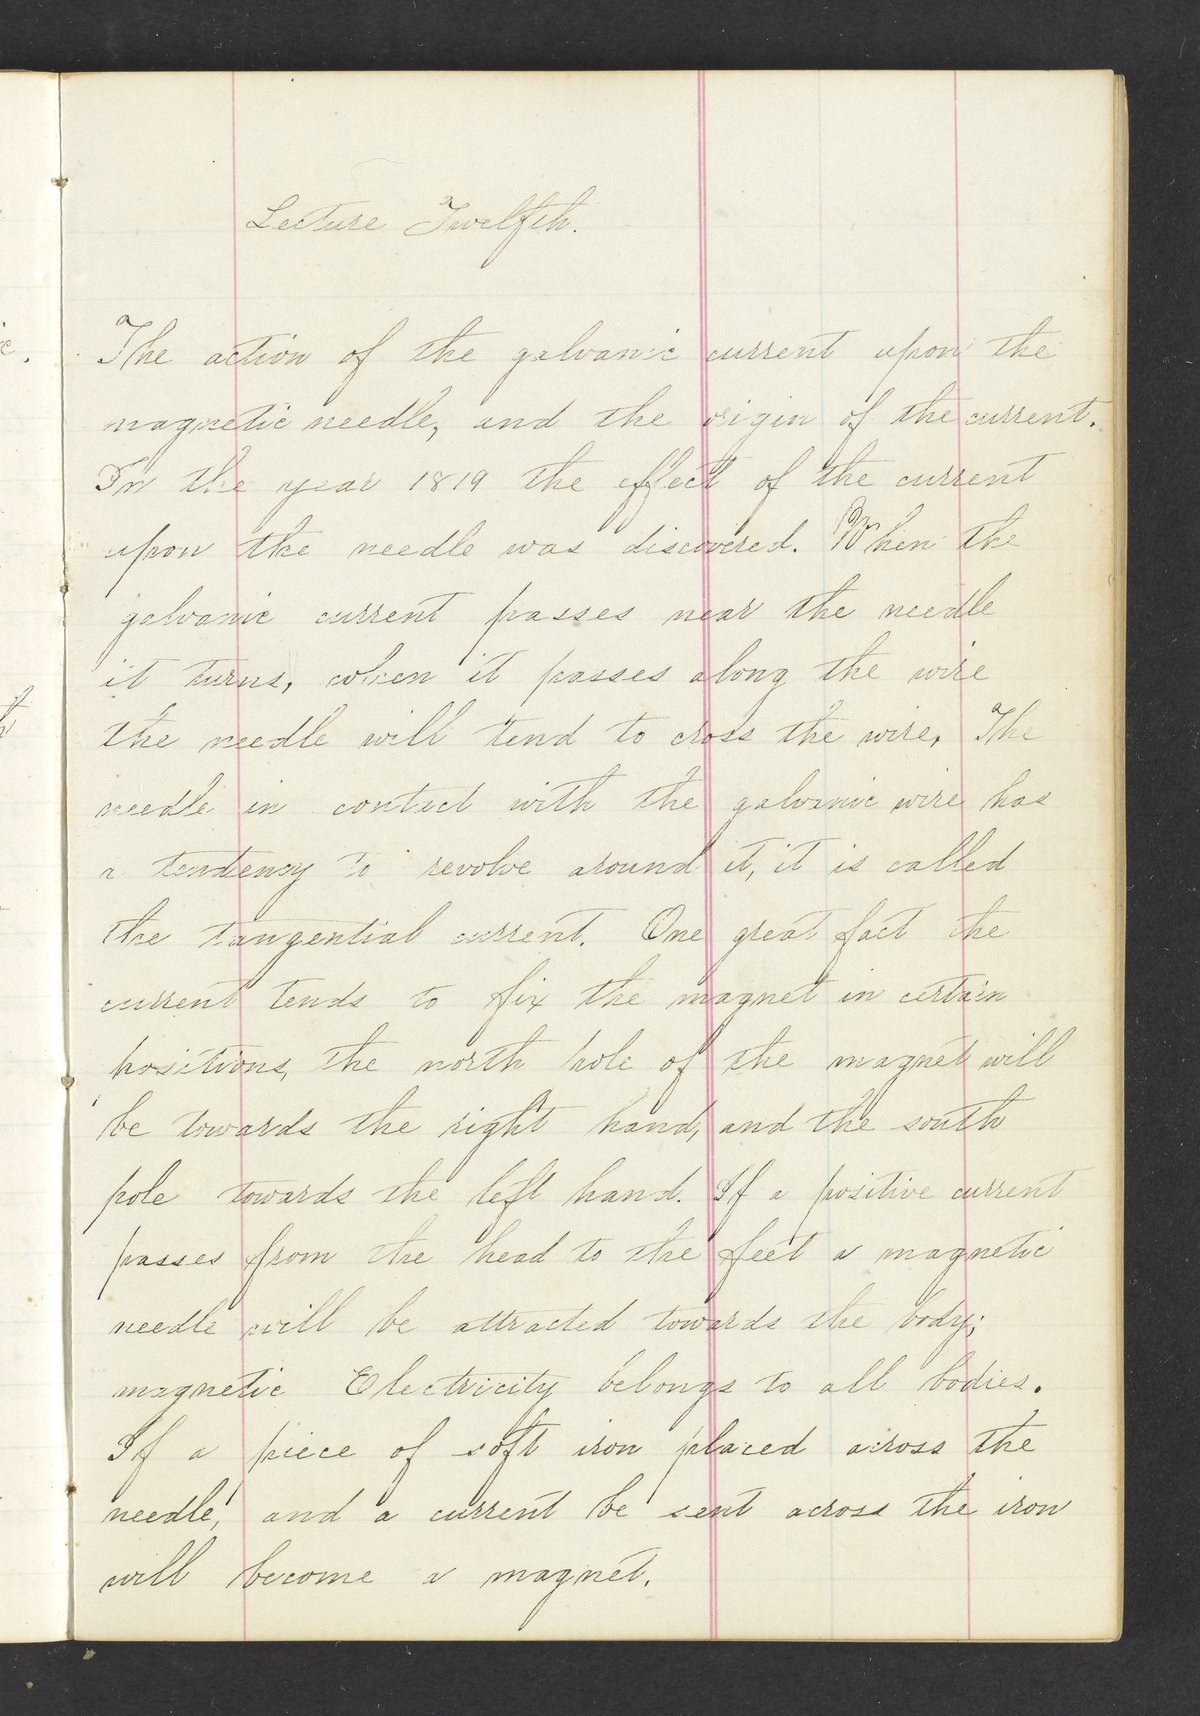 Lecture Twelfth.
The action of the galvanic current upon the
magnetic needle, and the origin of the current.
In the year 1819 the effect of the current
upon the needle was discovered. When the
galvanic current passes near the needle
it turns, when it passes along the wire
the needle will tend to cross the wire. The
needle in contact with the galvanic wire has
a tendency to revolve around it, it is called
the tangential current. One great fact the
current tends to fix the magnet in certain
positions, the north pole of the magnet will
be towards the right hand, and the south
pole towards the left hand. If a positive current
passes from the head to the feet a magnetic
needle will be attracted towards the body;
magnetic Electricity belongs to all bodies.
If a piece of soft iron placed across the
needle, and a current be sent across the iron
will become a magnet.